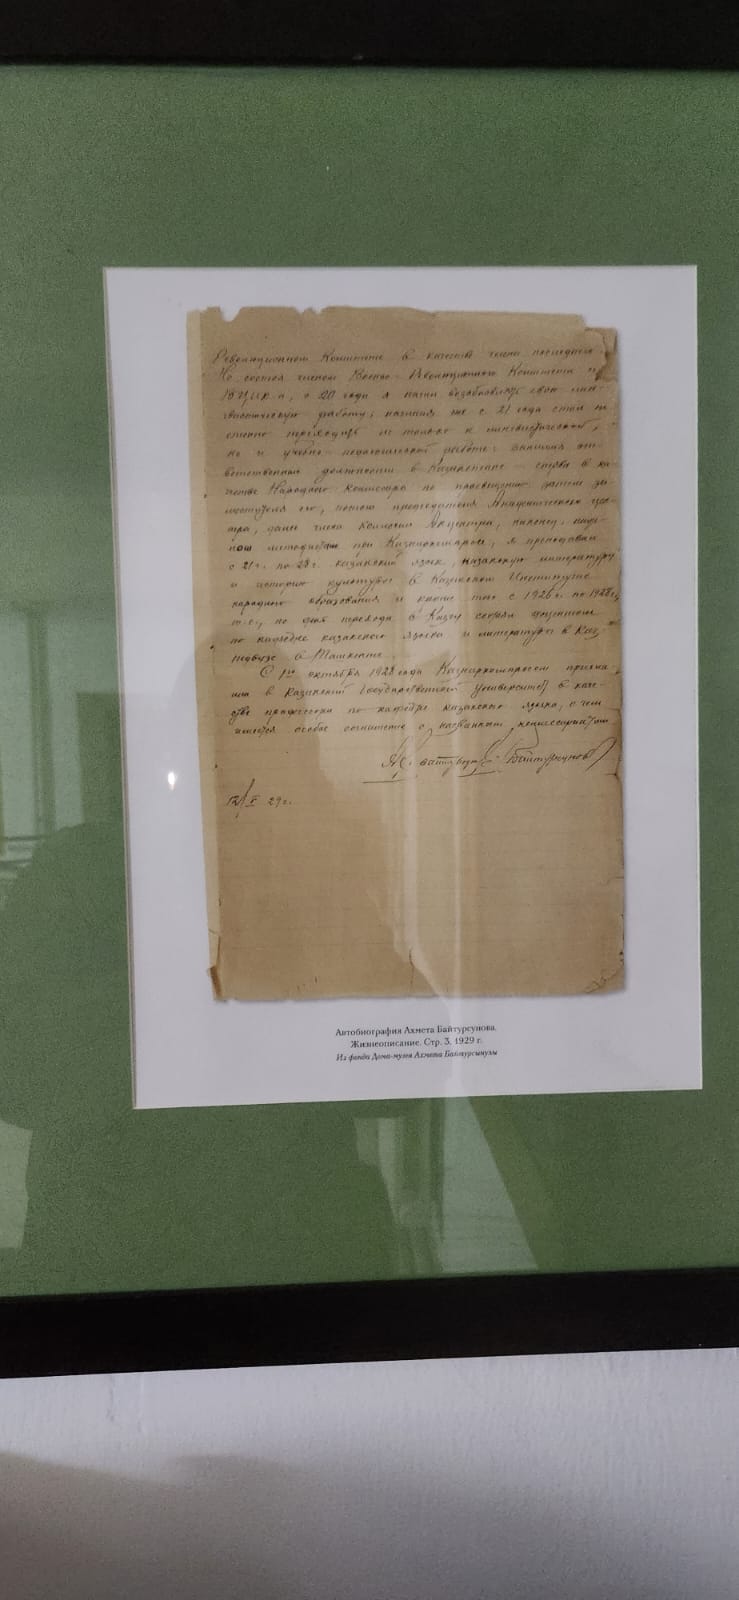 Революционном Комитете в качестве члена последнего.
Но состоя членом Военно-Революционного Комитета и
ВЦИК-а, с 20 года я начал возобновлять свою лин-
гвистическую работу; начиная же с 21 года стал
переходить не только к лингвистической,
но и учебно-педагогической работе: занимая от-
ветственные должности в сперва в ка-
честве Народного Комиссара по просвещению, затем за-
местителя его, потом председателя Академического цен-
тра, далее члена Коллегии Акцентра, наконец,
методистом при Казнаркомпросе, я преподавал
с 21 г. по 28 г. казакский язык, казакскую литературу
и историю культуры в Казакском Институте
народного образования и кроме того с 1926 г. по 1928 г.,
т.е., по день перехода в Казгу состоял доцентом
по кафедре казакского языка и литературы в Каз-
педвузе в Ташкенте.
С 1го октября 1928 года Казнаркомпросом пригла-
шен в Казакский Государственный Университет в каче-
стве профессора по кафедре казакского языка, о чем
имеется особое соглашение с названным комиссариатом
Байтурсунов
12/V 29 г.
Автобиография Ахмета Байтурсунова.
Жизнеописание. Стр. 3. 1929 г.
Из фонда Дома-музея Ахмета Байтурсынулы